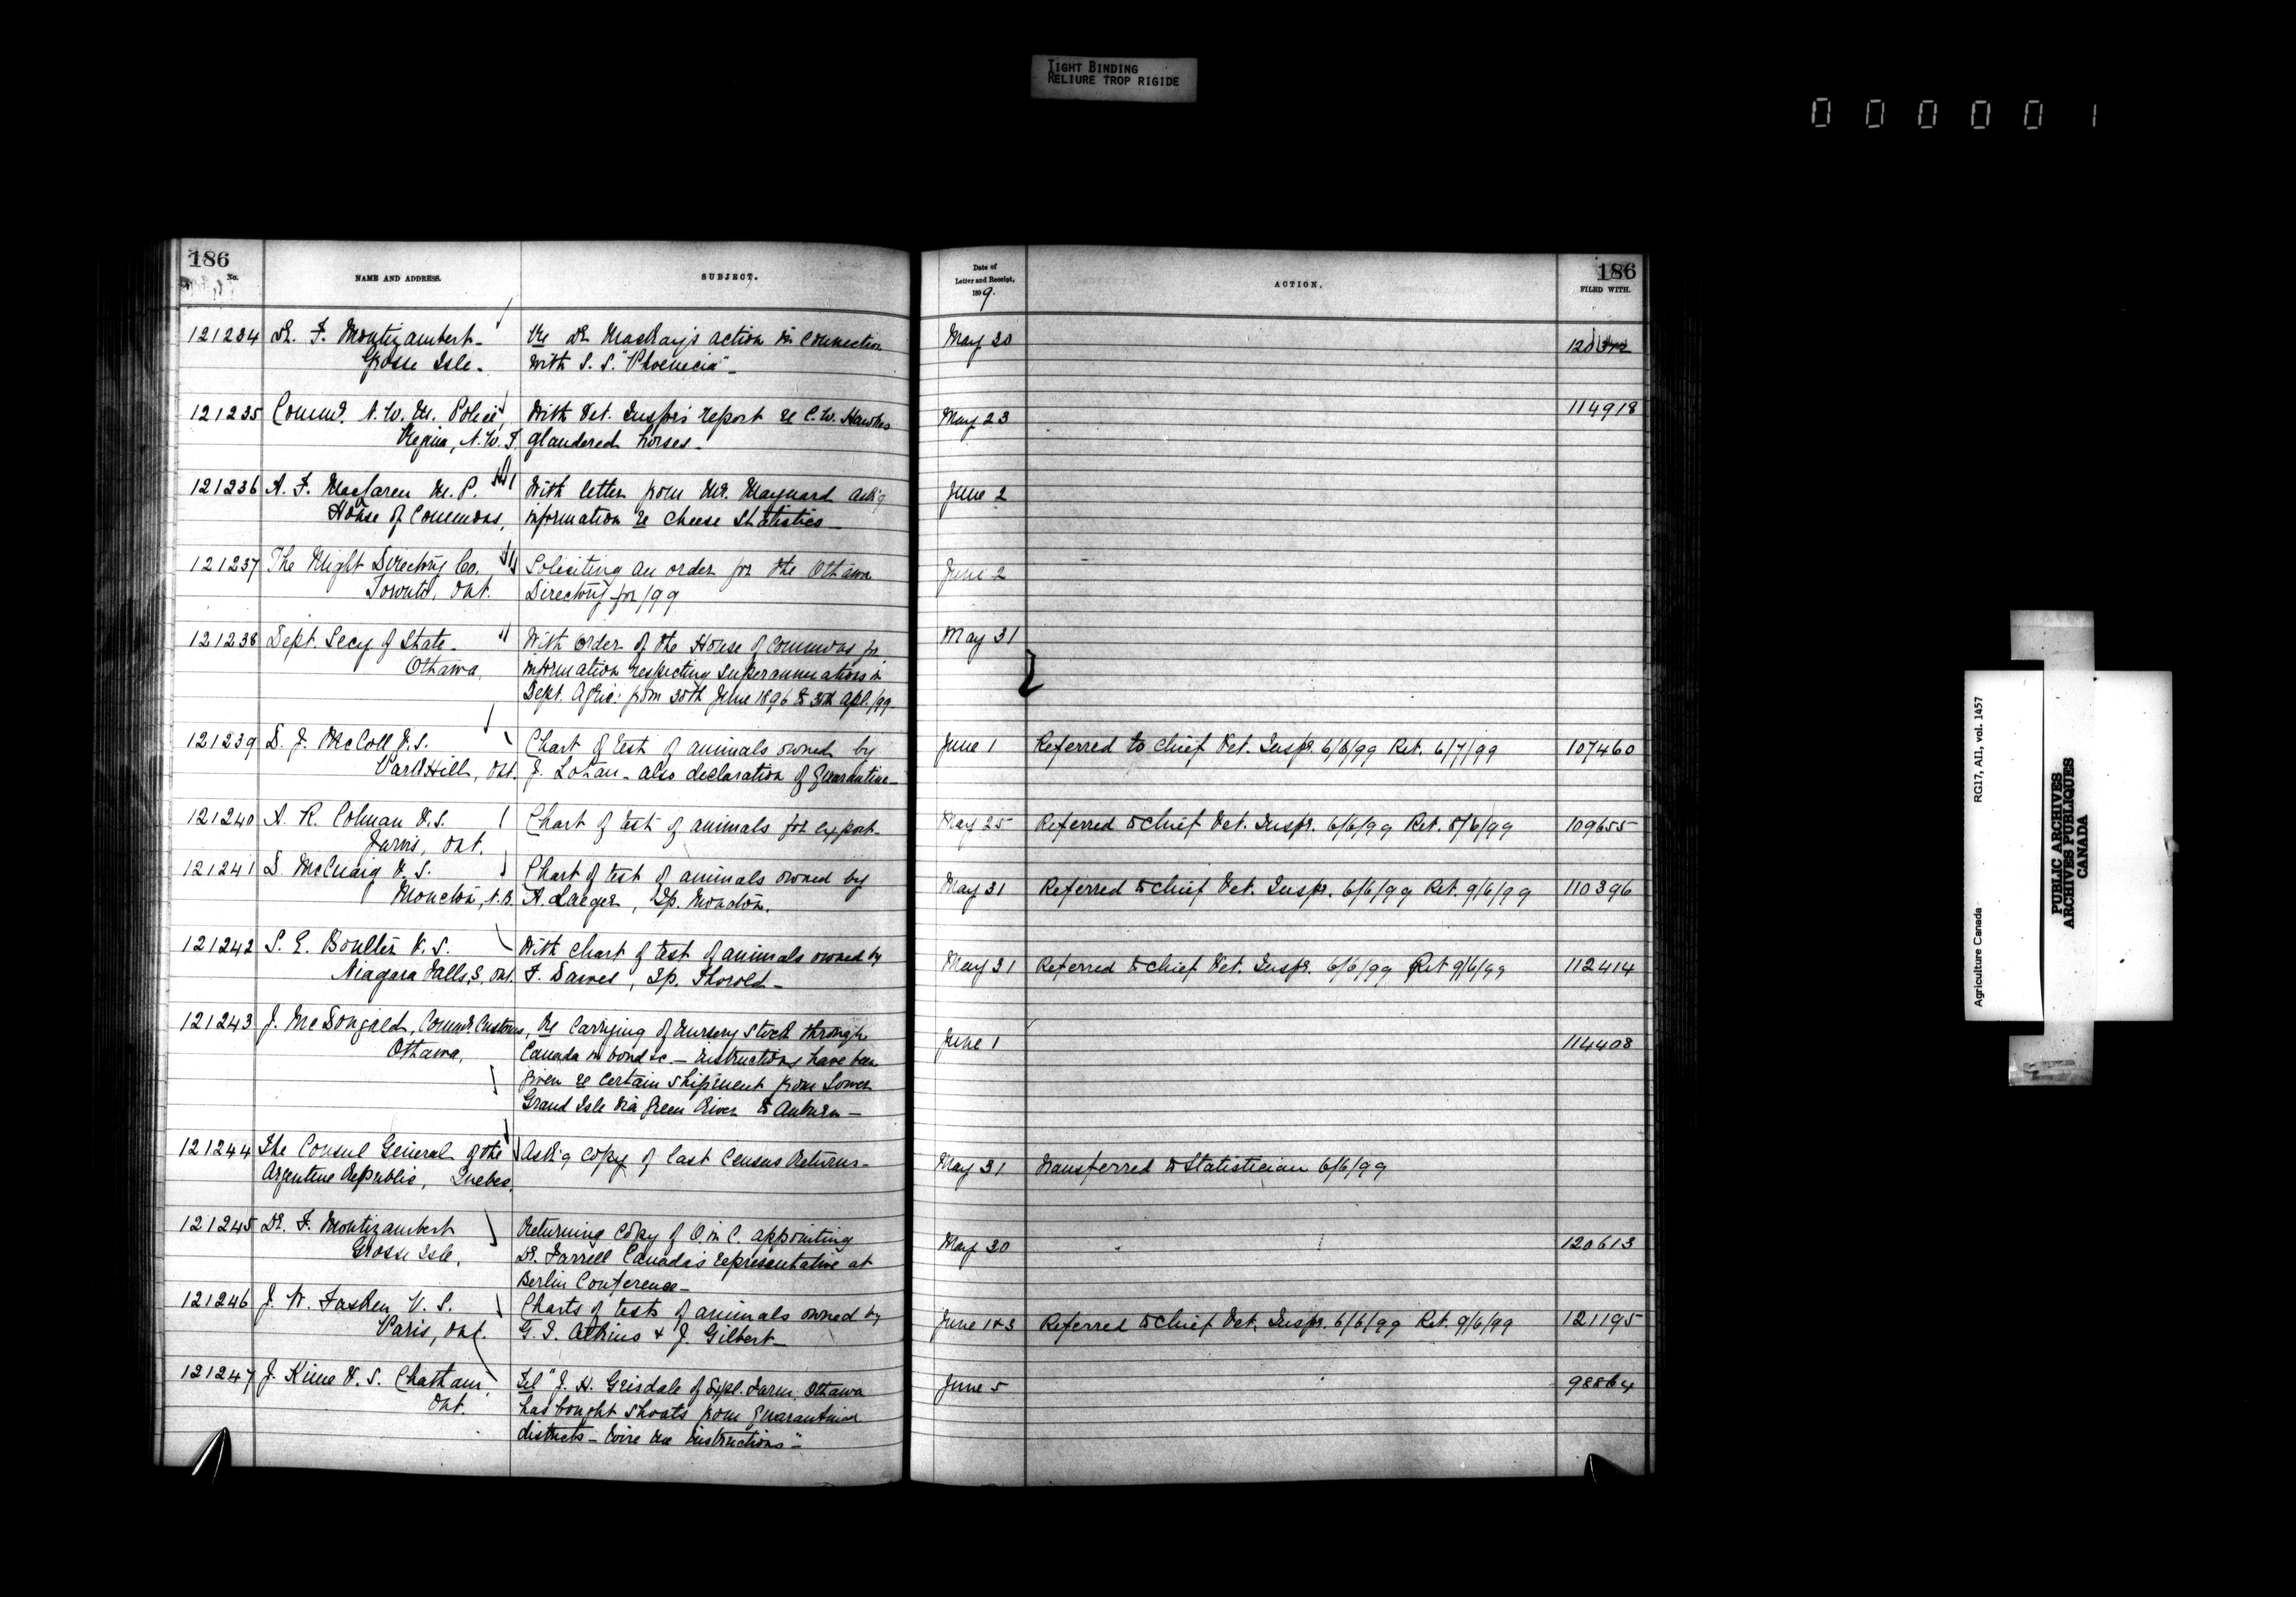 TIGHT BINDING
RELIURE TROP RIGIDE
000001
186
No. NAME AND ADDRESS. SUBJECT.
121234 Dr. F. Montizambert Re Dr. MacKay's action in connection
Grosse Isle. With S. S. "Phoenicia"
121235 Commr. N. W. M. Police With Vet. Inspr's report re C. W. Hawkes
Regina, N.W.T. glandered horses
121236 A. F. MacLaren M.P. With letter from Mr. Maynard ask'g
House of Commons, information re Cheese Statistics
121237 The Might Directory Co. Soliciting an order for the Ottawa
Toronto, Ont. Directory for /99
121238 Dept. Secy of State With Order of the House of Commons for
Ottawa, information respecting superannuations in
Dept. Agric: from 30th June 1896 to 30th Apl. /99
121239 D. J. McColl V.S. Chart of test of animals owned by
Park Hill, Ont. also declaration of Quarantine
121240 A. R. Colman V.S. Chart of test of animals for export
Jarvis, Ont.
121241 D. McCuaig V.S. Chart of test of animals owned by
Moncton, N.B. A. , Tp. Moncton.
121242 S. E. Boulter V.S. With chart of test of animals owned by
Niagara Falls, S, Ont. F. Dawes, Tp. Thorold
121243 J. McDougald, Commr. Customs, Re Carrying of Nursery Stock through
Ottawa, Canada in bond &c. — instructions have been
given re certain shipment from Lower
Grand Isle via Green River to Auburn —
121244 The Consul General of the Ask'g copy of last Census Returns
Argentine Republic, Quebec,
121245 Dr. F. Montizambert Returning copy of O. in C. appointing
Grosse Isle, Dr. Farrell Canada's representative at
Berlin Conference
121246 J. W. Fasken V. S. Charts of tests of animals owned by
Paris, Ont. G. I. Atkins & J. Gilbert
121247 J. Kime V.S. Chatham, Tel "J. H. Grisdale of Expl. Farm Ottawa
Ont. has bought shoats from quarantined
districts — Wire me instructions"
186
Date of
Letter and Receipt,
1899. ACTION. FILED WITH.
May 30
114918
May 23
June 2
June 2
May 31
June 1 Referred to Chief Vet. Inspr. 6/6/99 Ret. 6/7/99 107460
May 25 Referred to Chief Vet. Inspr. 6/6/99 Ret. 8/6/99 109655
May 31 Referred to Chief Vet. Inspr. 6/6/99 Ret. 9/6/99 110396
May 31 Referred to Chief Vet. Inspr. 6/6/99 Ret 9/6/99 112414
June 1 114408
May 31 Transferred to Statistician 6/6/99
May 30 120613
June 1&3 Referred to Chief Vet. Inspr. 6/6/99 Ret. 9/6/99 121195
June 5 98864
Agriculture Canada RG17, AII, vol. 1457
PUBLIC ARCHIVES
ARCHIVES PUBLIQUES
CANADA